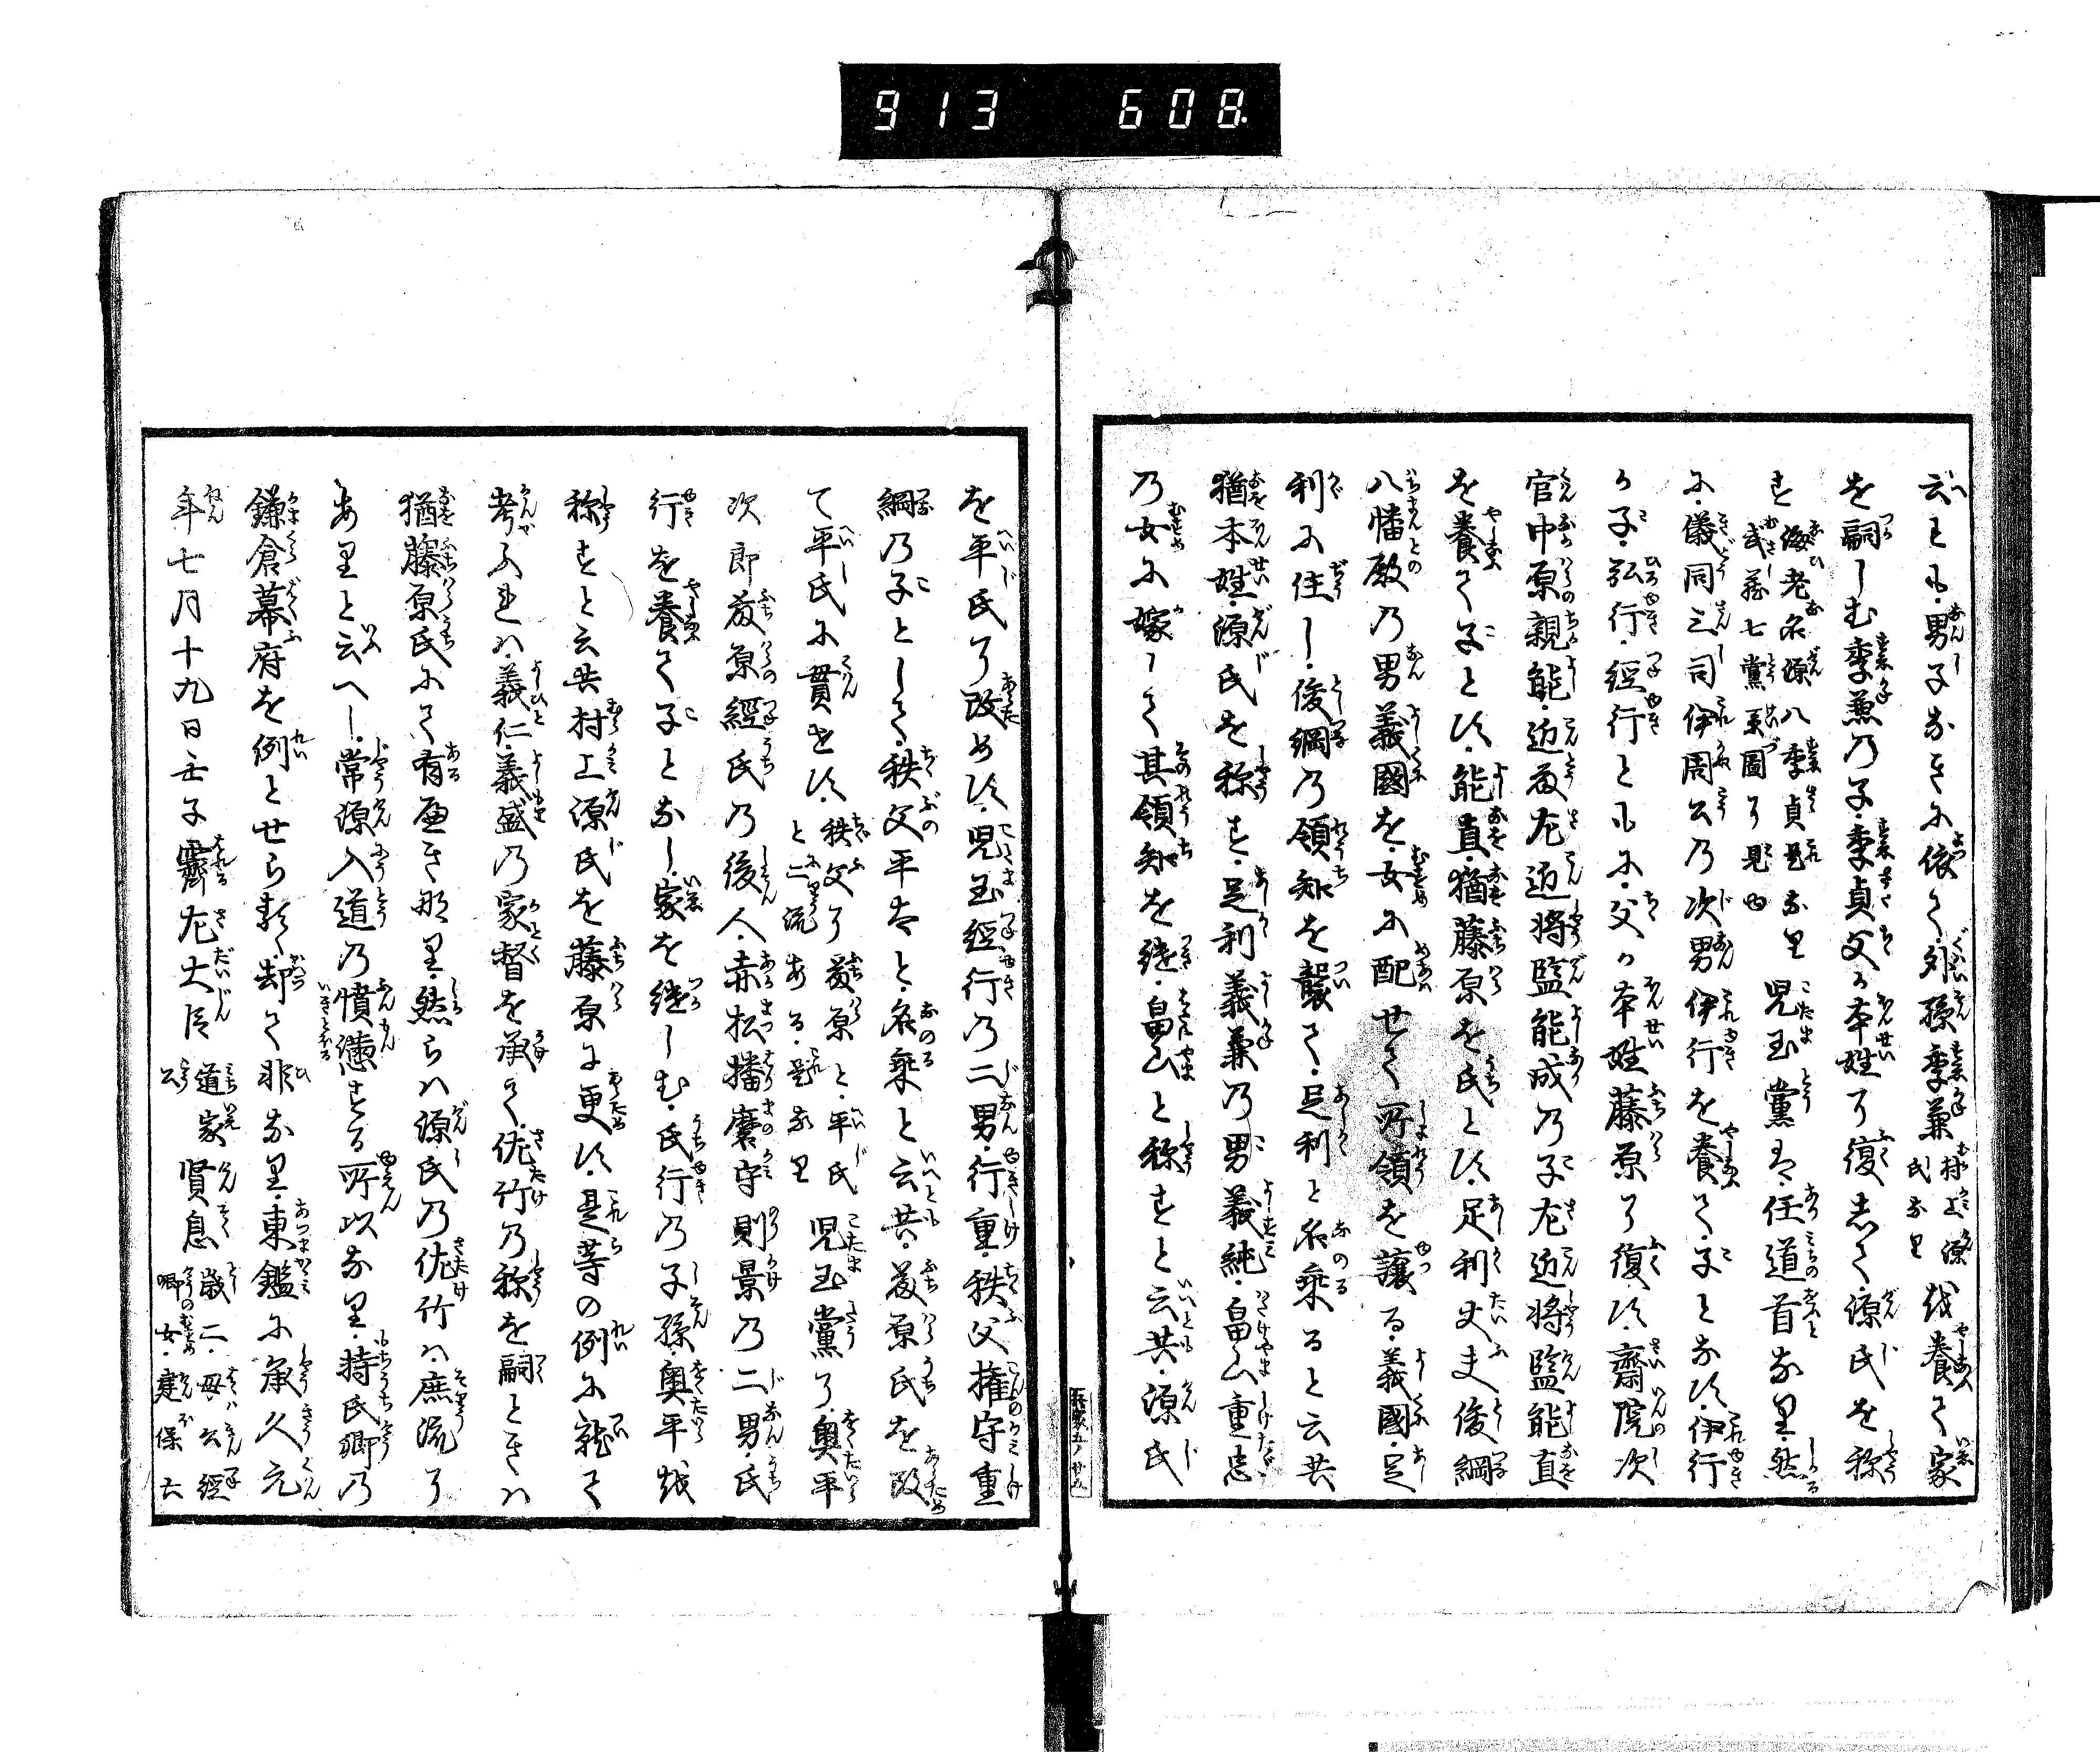 913 608.
云とも・男子なきに依て・外孫季兼村上源氏なり 越養て家
を嗣しむ季兼乃子・季貞父乃本姓に復して・源氏を称
す海老名源八季貞是なり武蔵七黨系圖に見ゆ 児玉黨は・任道首なり・然
に・儀同三司伊周公乃次男伊行を養て・子となす・伊行
か子・弘行・経行ともに・父か本姓藤原に復す・齋院次
官中原親能・近藤左近将監能成乃子左近将監能直
を養て子とす・能直・猶藤原を氏とす・足利大夫俊綱
八幡殿乃男義國を・女に配せて所領を譲る・義國・足
利に住し・俊綱乃領知を襲て・足利と名乗ると云共
猶本姓・源氏を称す・足利義兼乃男義純・畠山重忠
乃女に嫁して其領知を継・畠山と称すと云共・源氏
を平氏に改めす・児玉経行乃二男・行重・秩父権守重
綱乃子として・秩父平太と・名乗と云共・藤原氏を改
て平氏に貫せす・秩父に藤原と・平氏と二流ある・是なり 児玉黨に・奥平
次郎藤原經氏乃後人・赤松播磨守則景乃二男・氏
行を養て子となし・家を継しむ・氏行乃子孫・奥平越
称すと云共村上源氏を藤原に更す・是等の例に就て
考ふれは・義仁・義盛乃家督を承て・佐竹乃称を嗣ときは
猶藤原氏にて有へき那り・然らは源氏乃佐竹は・庶流に
ありと云へし・常源入道乃憤懣する所以なり・持氏卿乃
鎌倉幕府を例とせら類・却て非なり・東鑑に承久元
年七月十九日壬子霽左大臣道家公賢息歳二・母公經卿女・建保六